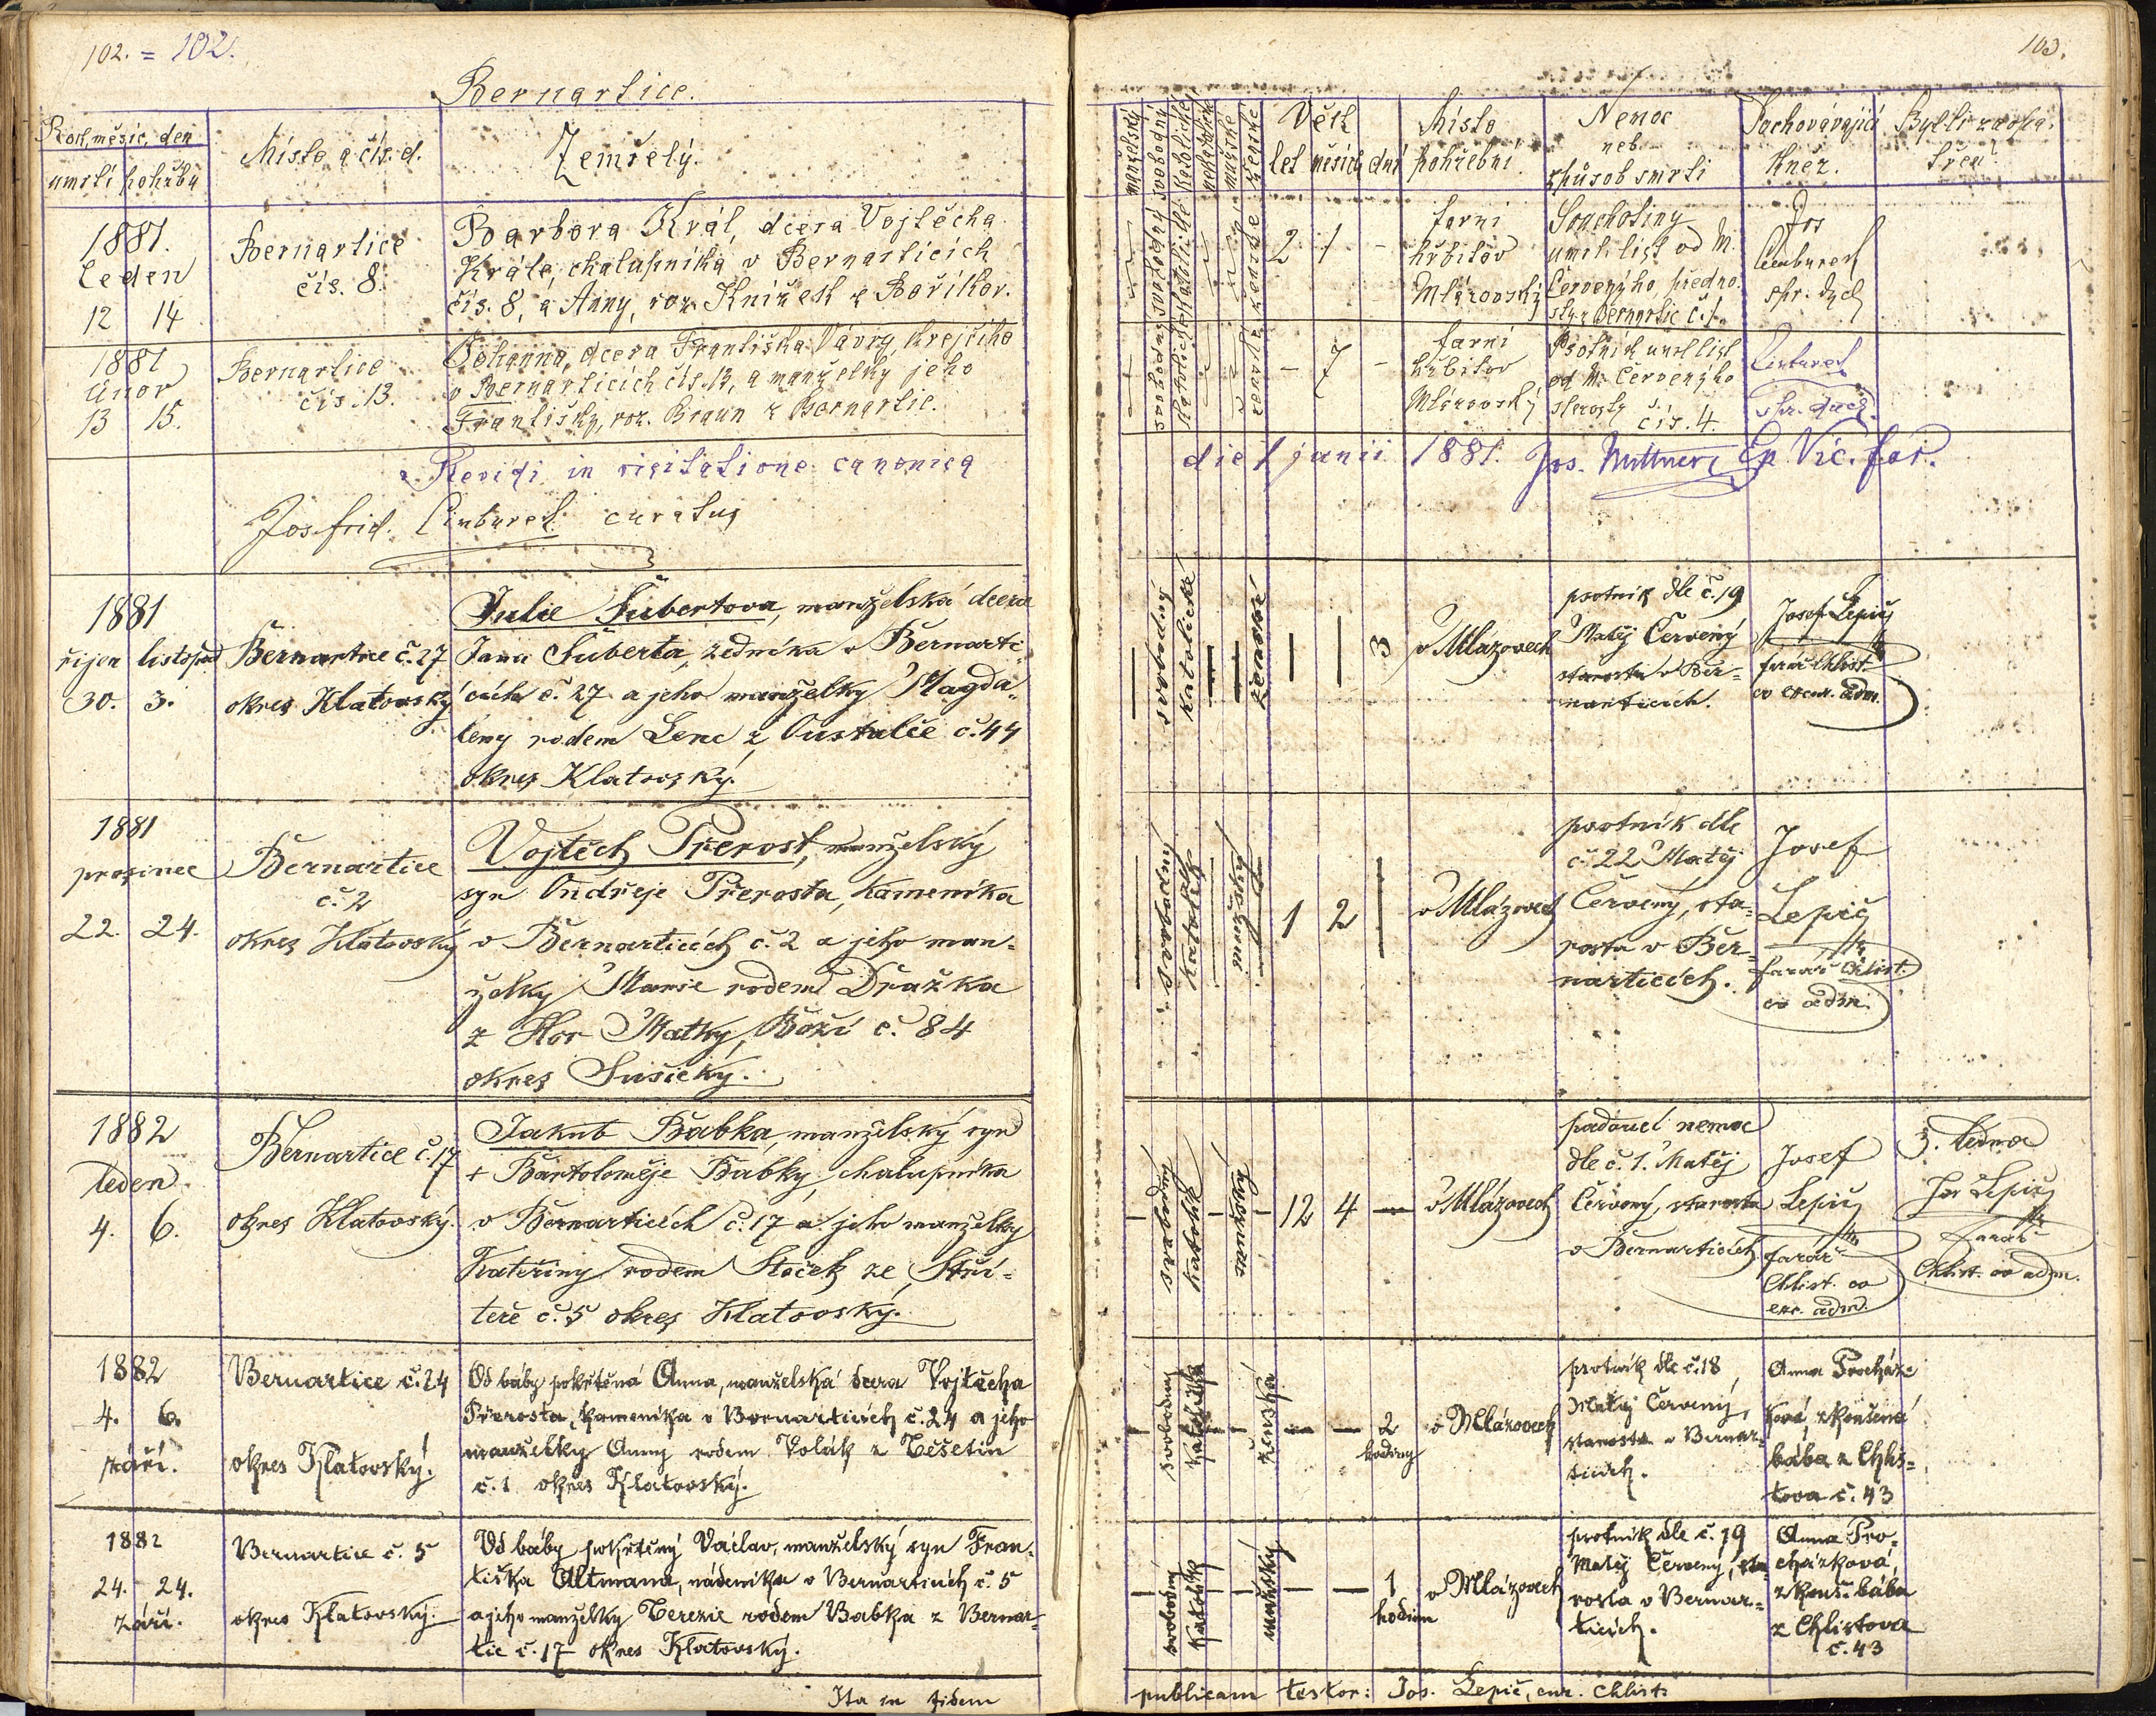 102. = 102.
Bernartice.
Rok, měsíc, den
umrtí pohřbu
Místo a čís. d.
Zemřelý.
1881.
Leden
12 14
Bernartice
čís. 8.
Barbora Král, dcera Vojtěcha
Krále, chalupníka v Bernarticích
čís. 8, a Anny, roz. Knížek z Boříkov.
1881
Únor
13 15.
Bernartice
čís. 13.
Johanna, dcera Františka Vávry krejčího
v Bernarticích čís. 13, a manželky jeho
Františky, roz. Braun z Bernartic.
Revidi in visitatione canonica
Jos. frid. Cimburek curatus
1881
říjen listopad
30. 3.
Bernartice č. 27
okres Klatovský
Julie Šubertova, manželská dcera
Jana Šuberta, zedníka v Bernarti-
cích č. 27 a jeho manželky Magda-
leny rodem Lenc z Oustalče č. 44
okres Klatovský.
1881
prosinec
22. 24.
Bernartice
č. 2
okres Klatovský
Vojtěch Přerost, manželský
syn Ondřeje Přerosta, kameníka
v Bernarticích č. 2 a jeho man-
želky Marie rodem Dražka
z Hor Matky Boží č. 84
okres Sušický.
1882
leden
4. 6.
Bernartice č. 17
okres Klatovský.
Jakub Babka, manželský syn
+ Bartoloměje Babky, chalupníka
v Bernarticích č. 17 a jeho manželky
Kateřiny rodem Stoček ze Stří-
teře č. 5 okres Klatovský.
1882
4. 6.
září.
Bernartice č. 24
okres Klatovský.
Od báby pokřtěná Anna, manželská dcera Vojtěcha
Přerosta, kameníka v Bernarticích č. 24 a jeho
manželky Anny rodem Polák z Těšetin
č. 1 okres Klatovský.
1882
24. 24.
září.
Bernartice č. 5
okres Klatovský.
Od báby pokřtěný Václav, manželský syn Fran-
tiška Altmana, nádeníka v Bernarticích č. 5
a jeho manželky Terezie rodem Babka z Bernar-
tic č. 17 okres Klatovský.
Ita in fidem
103.
manželský
svobodný
katolické
nekatolické
mužské
ženské
Věk
let měsíců dní
Místo
pohřební
Nemoc
neb
způsob smrti
Pochovávající
kněz.
Byl-li zaopa-
třen?
svobodný
katolické
ženské
2 1 -
farní
hřbitov
Mlázovský
Souchotiny
umrl. list od M.
Červenýho, předno.
sty z Bernartic č. 1
Jos
Cimburek
spr. duch
svobodný
katolické
ženské
- 7 -
farní
hřbitov
Mlázovský
Psotník umrl. list
od M. Červenýho
starosty
čís. 4.
Cimburek
spr. duch.
die 1 junii 1881. Jos. Mittner, Ep. Vic. for.
svobodný
katolické
ženské
3
v Mlázovech
psotník dle č. 19
Matěj Červený
starosta v Ber-
narticích.
Josef Lepič
farář Chlist.
co excur. adm.
svobodný
katolík
mužský
1 2
v Mlázovech
psotník dle
č. 22 Matěj
Červený, sta-
rosta v Ber-
narticích.
Josef
Lepič
farář Chlist.
co adm.
svobodný
katolík
mužský
12 4 -
v Mlázovech
padoucí nemoc
dle č. 1. Matěj
Červený, starosta
v Bernarticích
Josef
Lepič
farář
Chlist. co
exc. adm.
3. ledna
Jos Lepič
farář
Chlist. co adm.
svobodný
ženská
2
hodiny
v Mlázovech
psotník dle č. 18
Matěj Červený,
starosta v Bernar-
ticích.
Anna Procház-
ková, zkoušená
bába z Chlis-
tova č. 43
svobodný
katolík
mužský
1
hodinu
v Mlázovech
psotník dle č. 19
Matěj Červený, sta-
rosta v Bernar-
ticích.
Anna Pro-
cházková,
zkouš. bába
z Chlistova
č. 43
publicam testor: Jos. Lepič, cur. Chlist.